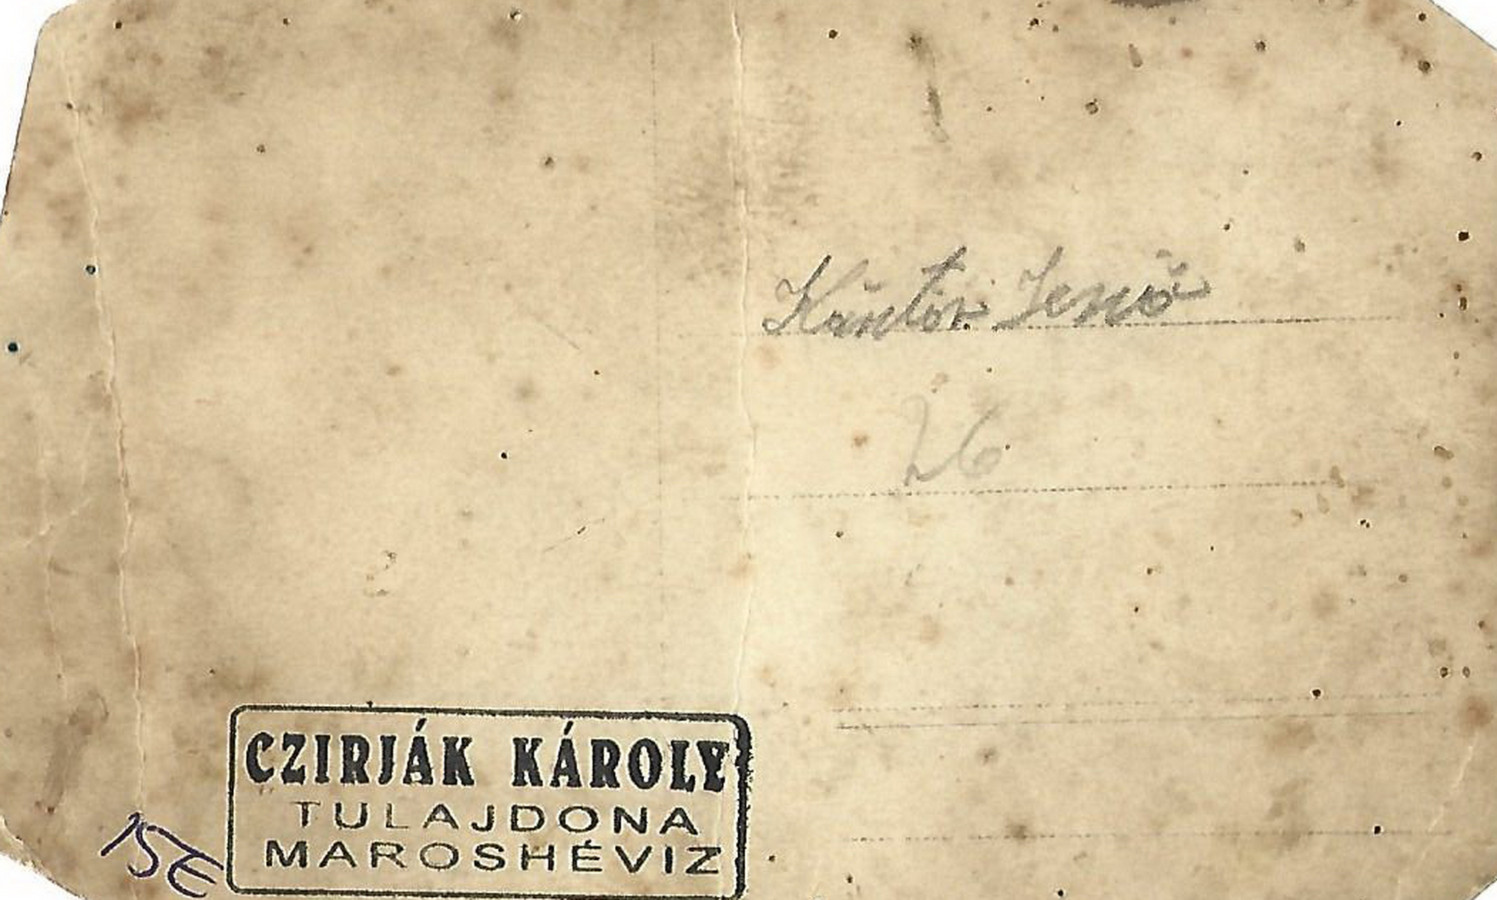 Kántor Jenő
26
CZIRJÁK KÁROLY
TULAJDONA
MAROSHÉVIZ
15E